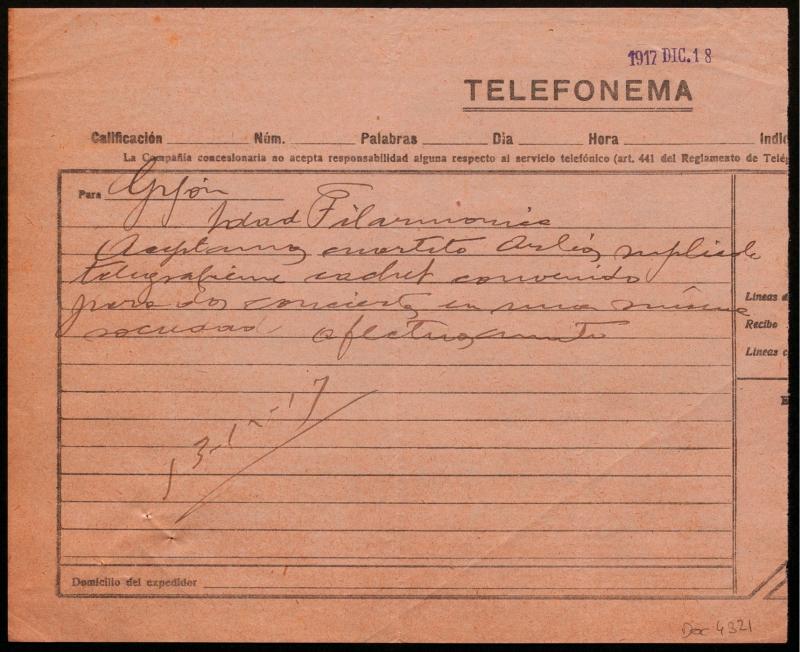 1917 DIC. 18
TELEFONEMA
Calificación Núm. Palabras Dia Hora Indic
La Compañía concesionaria no acepta responsabilidad alguna respecto al servicio telefónico (art. 441 del Reglamento de Telég
Para Gijón
Filarmonica
Aceptamos cuarteto suplicole
telegrafieme cachet convenido
para dos conciertos en una misma
sociedad afectuosamente
13-12-17
Lineas d
Recibo
Lineas c
E
Domicilio del expedidor
Doc 4321